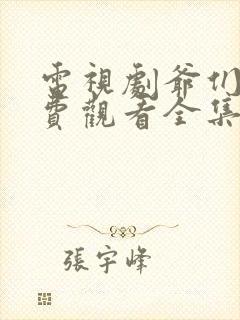 電視劇爺们
費觀看全集
張宇峰